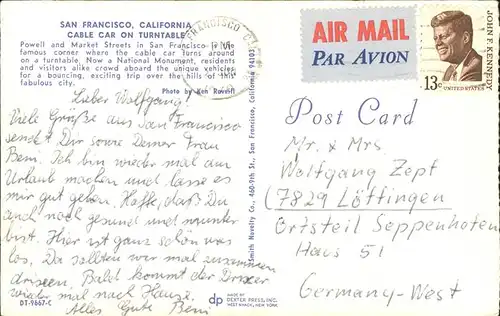 SAN FRANCISCO, CALIFORNIA
CABLE CAR ON TURNTABLE
Powell and Market Streets in San Francisco is the
famous corner where the cable car turns around
on a turntable. Now a National Monument, residents
and visitors alike crowd aboard the unique vehicles
for a bouncing, exciting trip over the hills of this
fabulous city.
Photo by Ken
Lieber Wolfgang!
Viele Grüße aus San Francisco
sendet Dir sowie Deiner Frau
Beni. Ich bin wieder mal am
Urlaub machen und lasse es
mir gut gehen. Hoffe, daß Du
auch noch gesund und munter
bist. Hier ist ganz schön was
los. Da sollten wir mal zusammen
Bald kommt der
wieder mal nach Hause.
Alles Gute Beni
DT-9867-C
dp
MADE BY
DEXTER PRESS, INC.
WEST NYACK, NEW YORK
Smith Novelty Co., 460-9th St., San Francisco, California 94103
FRANCISCO
AIR MAIL
PAR AVION
JOHN F. KENNEDY
13c
UNITED STATES
Post Card
Mr. & Mrs
Wolfgang Zepf
(7829 Löffingen
Ortsteil Seppenhofen
Haus 51
Germany-West